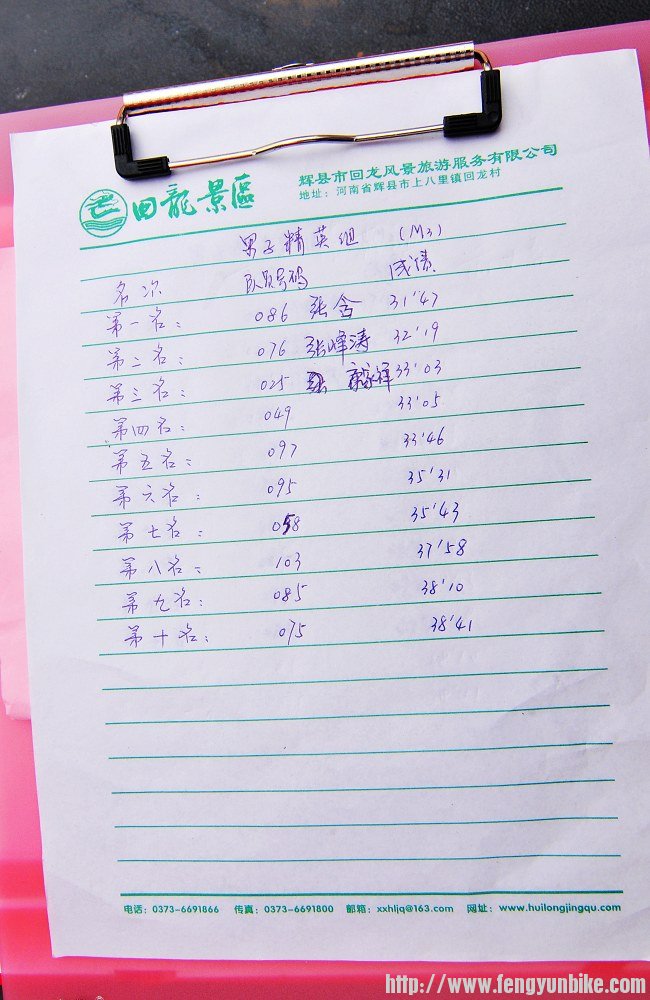 回龍景區
辉县市回龙风景旅游服务有限公司
地址：河南省辉县市上八里镇回龙村
男子精英组 (M3)
名次 队员号码 成绩
第一名： 086 张含 31'47
第二名： 076 张峰涛 32'19
第三名： 025 33'03
第四名： 049 33'05
第五名： 097 33'46
第六名： 095 35'31
第七名： 058 35'43
第八名： 103 37'58
第九名： 085 38'10
第十名： 075 38'41
电话：0373-6691866 传真：0373-6691800 邮箱：xxhljq@163.com 网址：www.huilongjingqu.com
http://www.fengyunbike.com